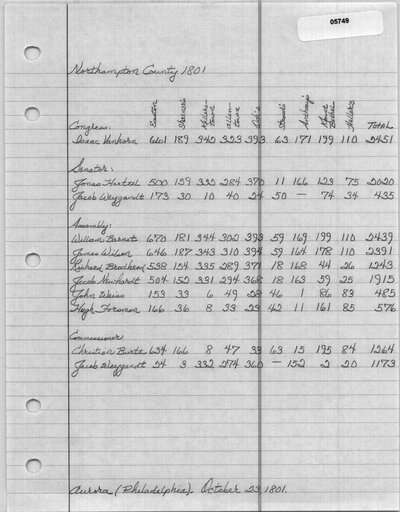 05749
Northampton County 1801
Easton Millerstown Allentown Stroud's Mount Bethel Heller's TOTAL
Congress:
Isaac Vanhorn 661 189 342 323 393 63 171 199 110 2451
Senator:
Jonas Hartzel 500 159 332 284 370 11 166 123 75 2020
Jacob Weygandt 173 30 10 40 24 50 — 74 34 435
Assembly:
William Barnet 670 181 344 302 393 59 169 199 110 2439
James Wilson 646 187 343 310 394 59 164 178 110 2391
Richard Brodhead 538 154 335 289 371 18 168 44 26 1943
Jacob Newhardt 504 152 331 294 368 18 163 59 25 1915
John Weiss 153 33 6 49 28 46 1 86 83 485
Hugh Forsman 166 36 8 33 23 42 11 161 85 576
Commissioner
Christian Burtz 634 166 8 47 39 63 15 195 84 1264
Jacob Weygandt 24 3 332 274 360 — 152 2 20 1173
Aurora (Philadelphia). October 23, 1801.